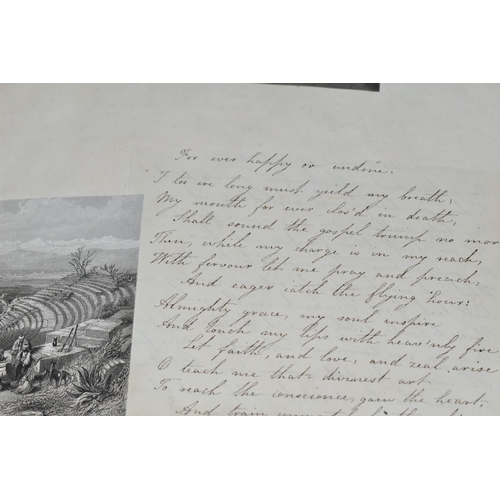 For ever happy or undone.
I too ere long must yeild my breath,
My mouth for ever clos'd in death,
Shall sound the gospel trump no mor
Then, while my charge is in my reach,
With fervour let me pray and preach,
And eager catch the flying hour:
Almighty grace, my soul inspire
And touch my lips with heav'nly fire
Let faith, and love, and zeal arise
O teach me that divinest art
To reach the conscience, gain the heart,
And train